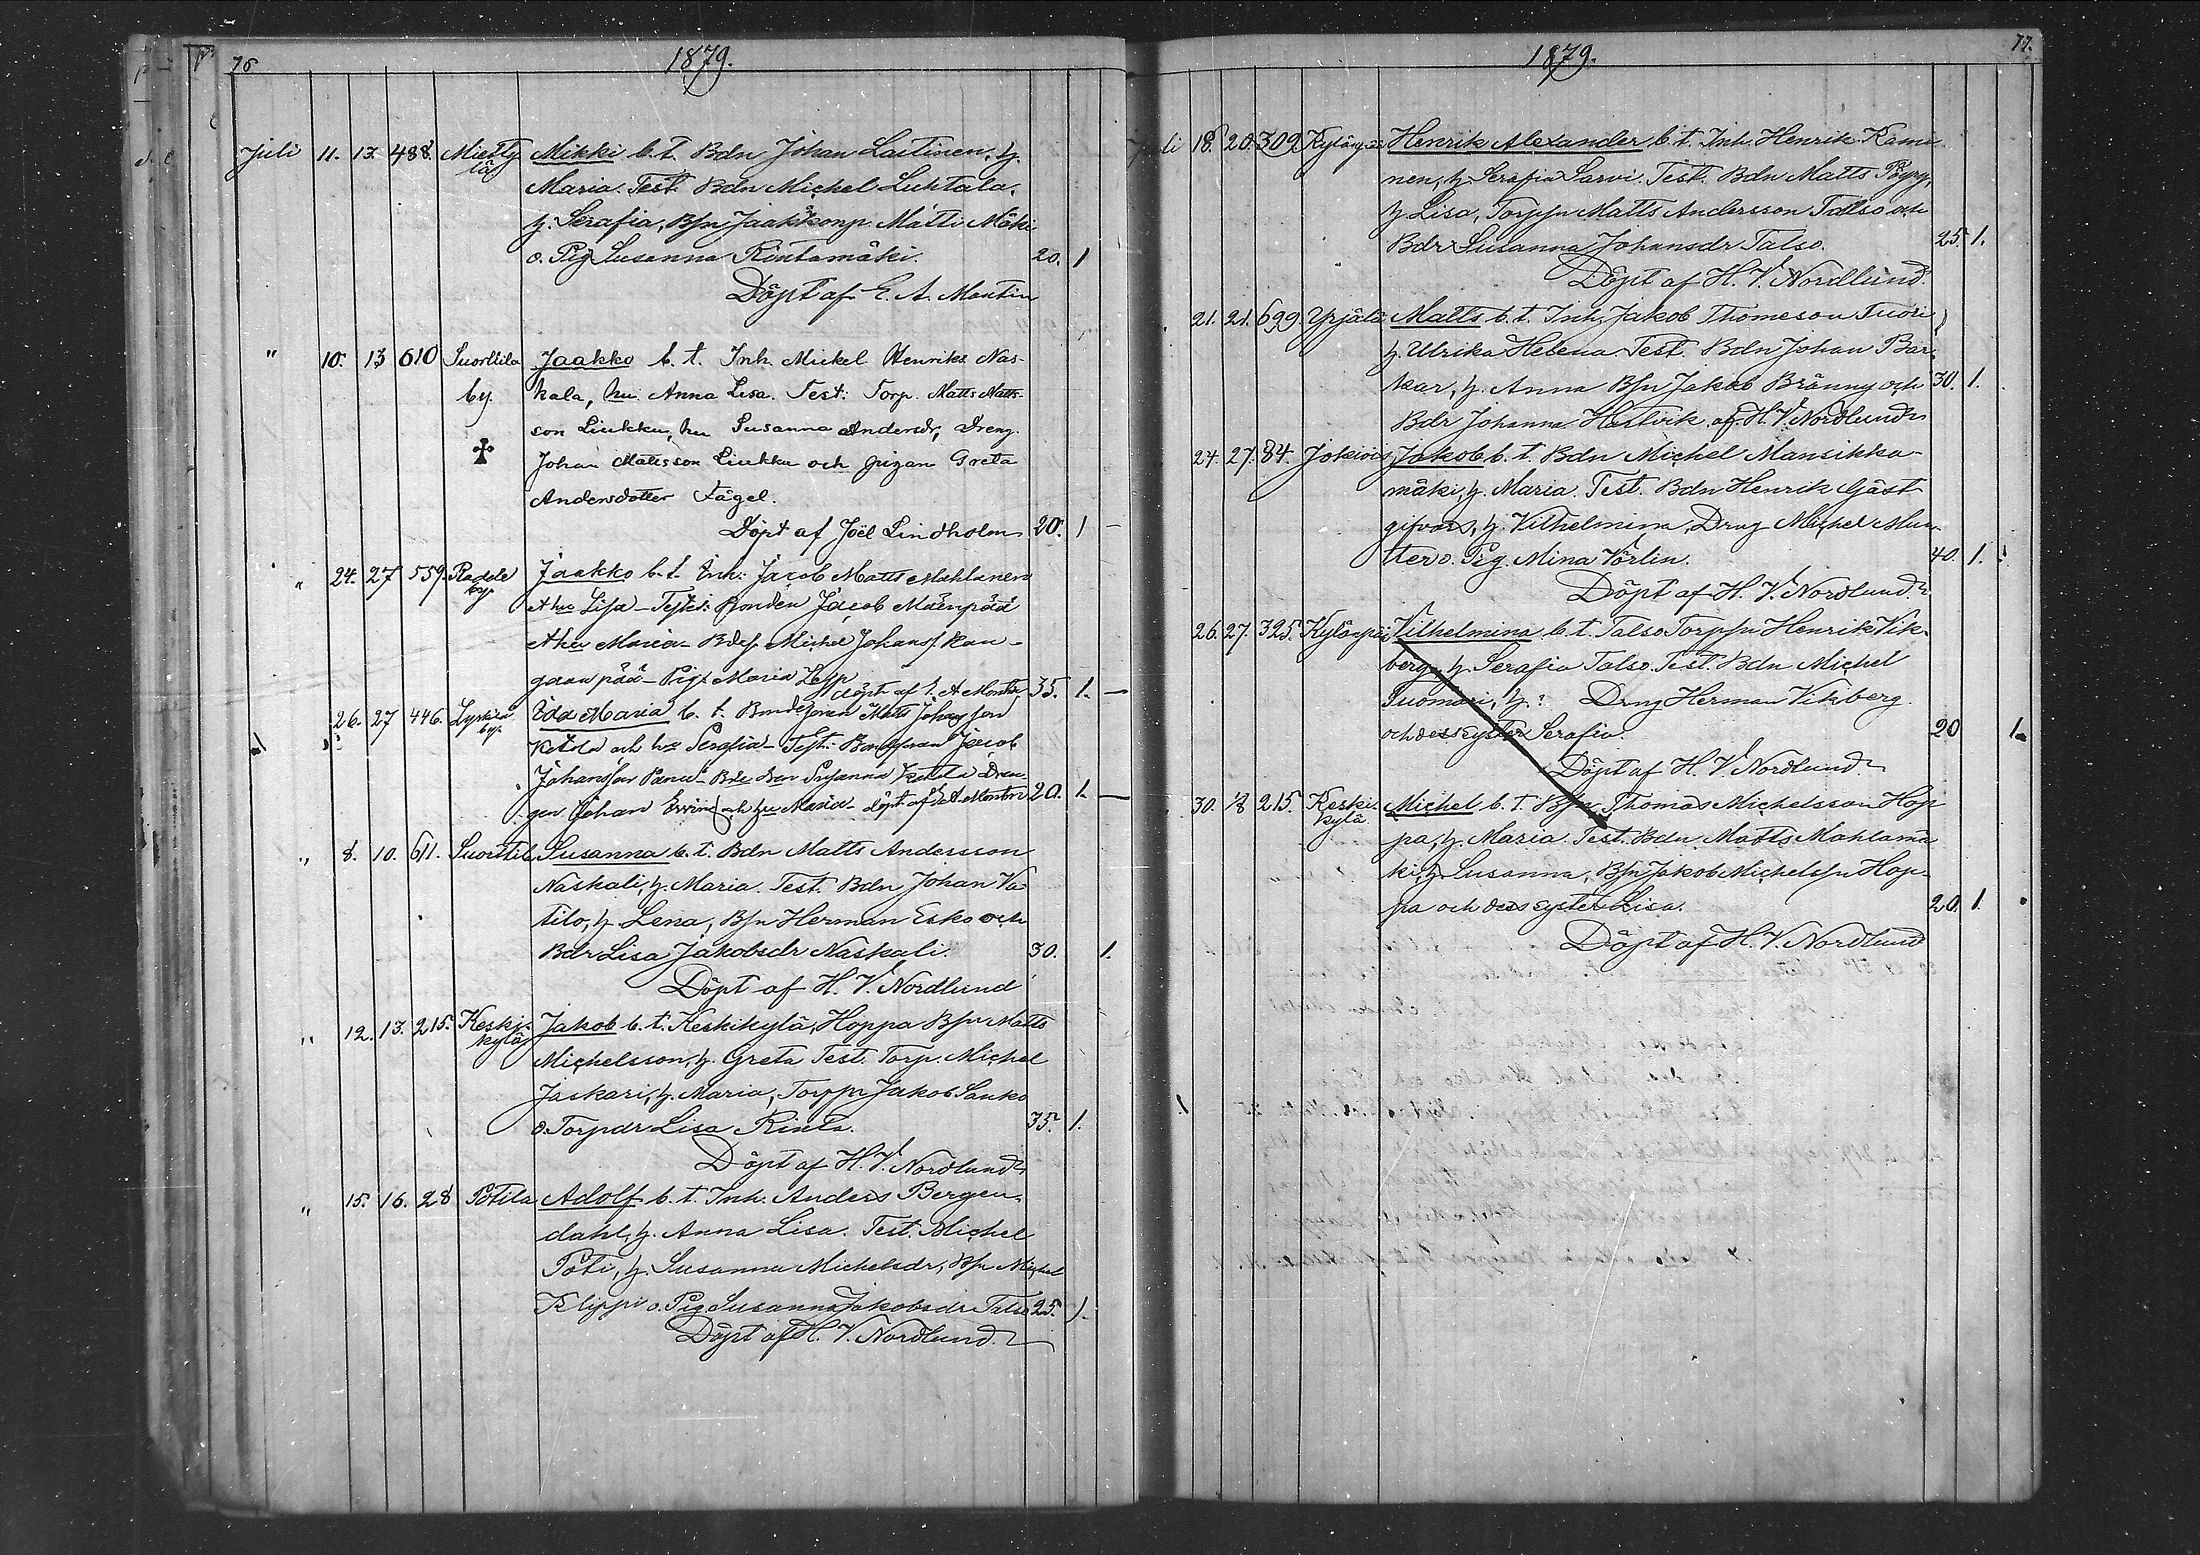 76
1879.
Juli 11. 13. 488. Miettylä Mikki b. t. Bdn Johan Laitinen, h.
Maria. Test. Bdn Michel Luhtala,
h. Serafia, Bsn Jaakkomp. Matti Mäki
o. Pig Susanna Rintamäki. 20. 1
Döpt af E. A. Montin
" 10. 13 610 Suorttila by Jaakko b. t. Inh. Mickel Henriks Nas-
kala, hu. Anna Lisa. Test: Torp. Matts Matts-
son Liukku, hu Susanna Andersdr, Dreng.
Johan Mattsson Liukku och pigan Greta
Andersdotter Fågel.
Döpt af Joël Lindholm 20. 1 –
" 24. 27 559. Radde by Jaakko b. t. Inh: Jacob Matts Mahlanen
et hu Lisa – Test: Bonden Jacob Mäenpää
et hu Maria – Bdes. Michel Johanss. Kan-
gaanpää – Pig. Maria Lepp
döpt af E. A. Montin 35. 1. –
26. 27 446. Lyskilä by. Eda Maria b. t. Bondesonen Matts Johansson
Ketola och hu Serafia – Test: Bondesonen Jacob
Johansson Panu – Bde Susanna Ketola Dren-
gen Johan och hu Maria – döpt af E A Montin 20. 1. –
" 8. 10. 611. Suorttil Susanna b. t. Bdn Matts Andersson
Naskali, h. Maria. Test. Bdn Johan Va-
tilo, h. Lena, Bsn Herman Esko och
Bdr Lisa Jakobsdr Naskali. 30. 1.
Döpt af H. V. Nordlund
" 12. 13. 215. Keski-kylä Jakob b. t. Keskikylä, Hoppa Bsn Matts
Michelsson, h. Greta Test. Torp. Michel
Jaskari, h. Maria, Torpn Jakob Sanko
o. Torpdr Lisa Rinta. 35. 1.
Döpt af H. V. Nordlund
" 15. 16. 28 Pötila Adolf b. t. Inh. Anders Bergen-
dahl, h. Anna Lisa. Test. Michel
Poti, h. Susanna Michelsdr, Bsn Michel
Klippi o. Pig Susanna Jakobsdr Talso 25. 1.
Döpt af H. V. Nordlund.
77.
1879.
li 18. 20. 309. Kylänpä Henrik Alexander b. t. Inh. Henrik Kami-
nen, h. Serafia Sarvi. Test. Bdn Matts Pyry,
h Lisa, Torpsn Matts Andersson Talso och
Bdr Susanna Johansdr Talso. 25. 1.
Döpt af H. V. Nordlund.
21. 21. 699. Yrjälä Matts b. t. Inh. Jakob Thomeson Tuori,
h. Ulrika Helena. Test. Bdn Johan Bar-
kar, h. Anna Bsn Jakob Bränny och 30. 1.
Bdr Johanna Hartvik af H. V. Nordlund
24. 27. 84. Jokiois Jakob b. t. Bdn Michel Mansikka-
mäki, h. Maria. Test. Bdn Henrik Gäst-
gifvars, h. Vilhelmina, Drng Michel Mun-
tter o. Pig. Mina Vörlin. 40. 1.
Döpt af H. V. Nordlund
26. 27. 325. Kylänpä Vilhelmina b. t. Talso Torpsn Henrik Vik-
berg, h. Serafia Talso. Test. Bdn Michel
Suomari, h.: Drng Herman Vikberg
och dess syster Serafia. 20 1.
Döpt af H. V. Nordlund.
30. 3/8 215. Keski-kylä Michel b. t. Bsn Thomas Michelsson Hop-
pa, h. Maria. Test. Bdn Matts Mahlamä-
ki, h. Susanna, Bsn Jakob Michelsn Hop-
pa och dess syster Lisa. 20. 1.
Döpt af H. V. Nordlund